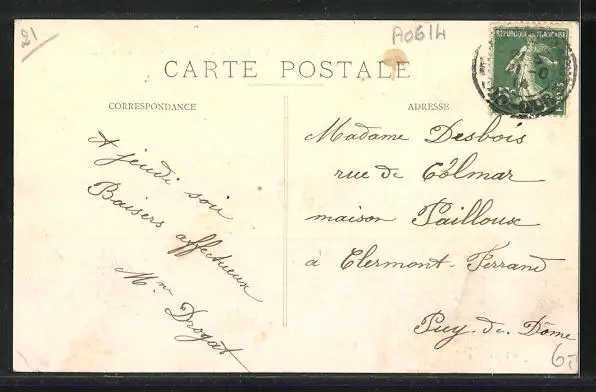 21
A0614
RÉPUBLIQUE FRANÇAISE
CARTE POSTALE
CORRESPONDANCE
A jeudi soir
Baisers affectueux
Mme Drogat
ADRESSE
Madame Desbois
rue de Colmar
maison Pailloux
à Clermont-Ferrand
Puy-de-Dôme